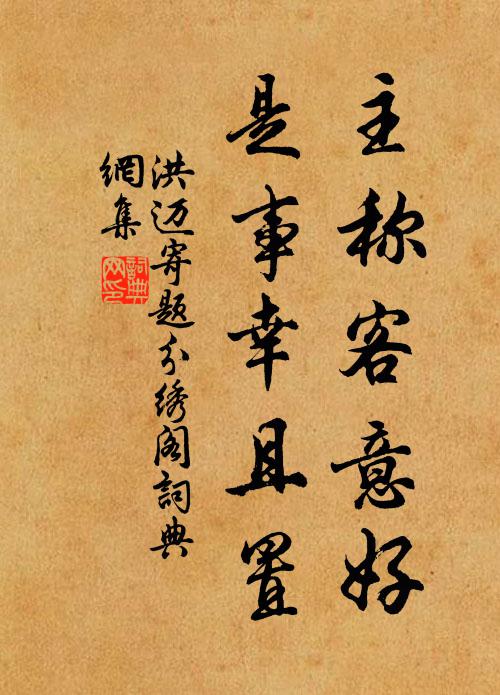 主称客意好
是事幸且置
洪迈寄题分绣阁詞典
網集
詞典
网印